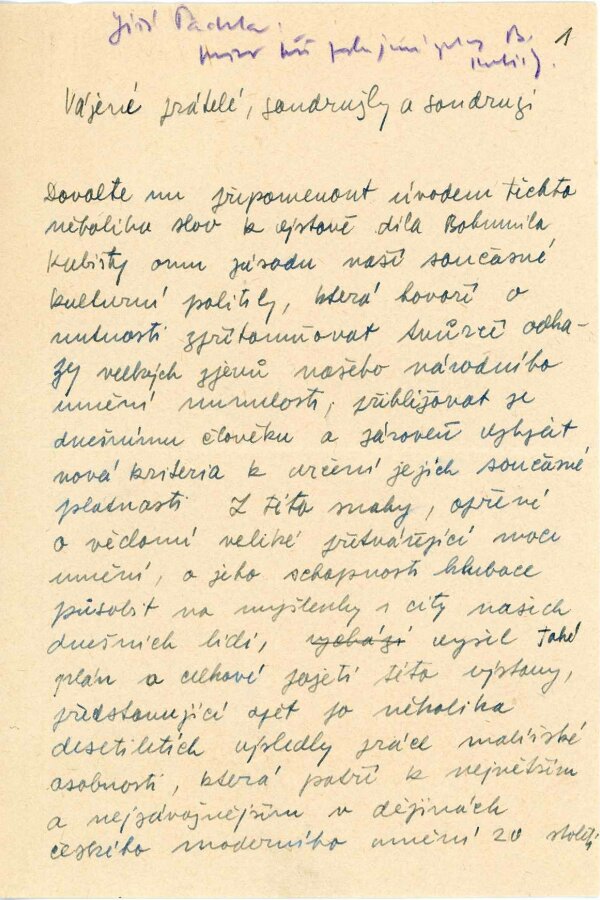 Jiří Padrta:
B.
1
Vážené přátelé, soudružky a soudruzi
Dovolte mi připomenout úvodem těchto
několika slov k výstavě díla Bohumila
Kubišty onu zásadu naší současné
kulturní politiky, která hovoří o
nutnosti zpřítomňovat tvůrčí odka-
zy velkých zjevů našeho národního
umění minulosti, přibližovat je
dnešnímu člověku a zároveň vytyčit
nová kriteria k určení jejich současné
platnosti Z této snahy, opřené
o vědomí veliké přetvářející moci
umění, o jeho schopnosti hluboce
působit na myšlenky i city našich
dnešních lidí, vychází vyšel také
plán a celkové pojetí této výstavy,
představující opět po několika
desetiletích výsledky práce malířské
osobnosti, která patří k největším
a nejzávažnějším v dějinách
českého moderního umění 20 století